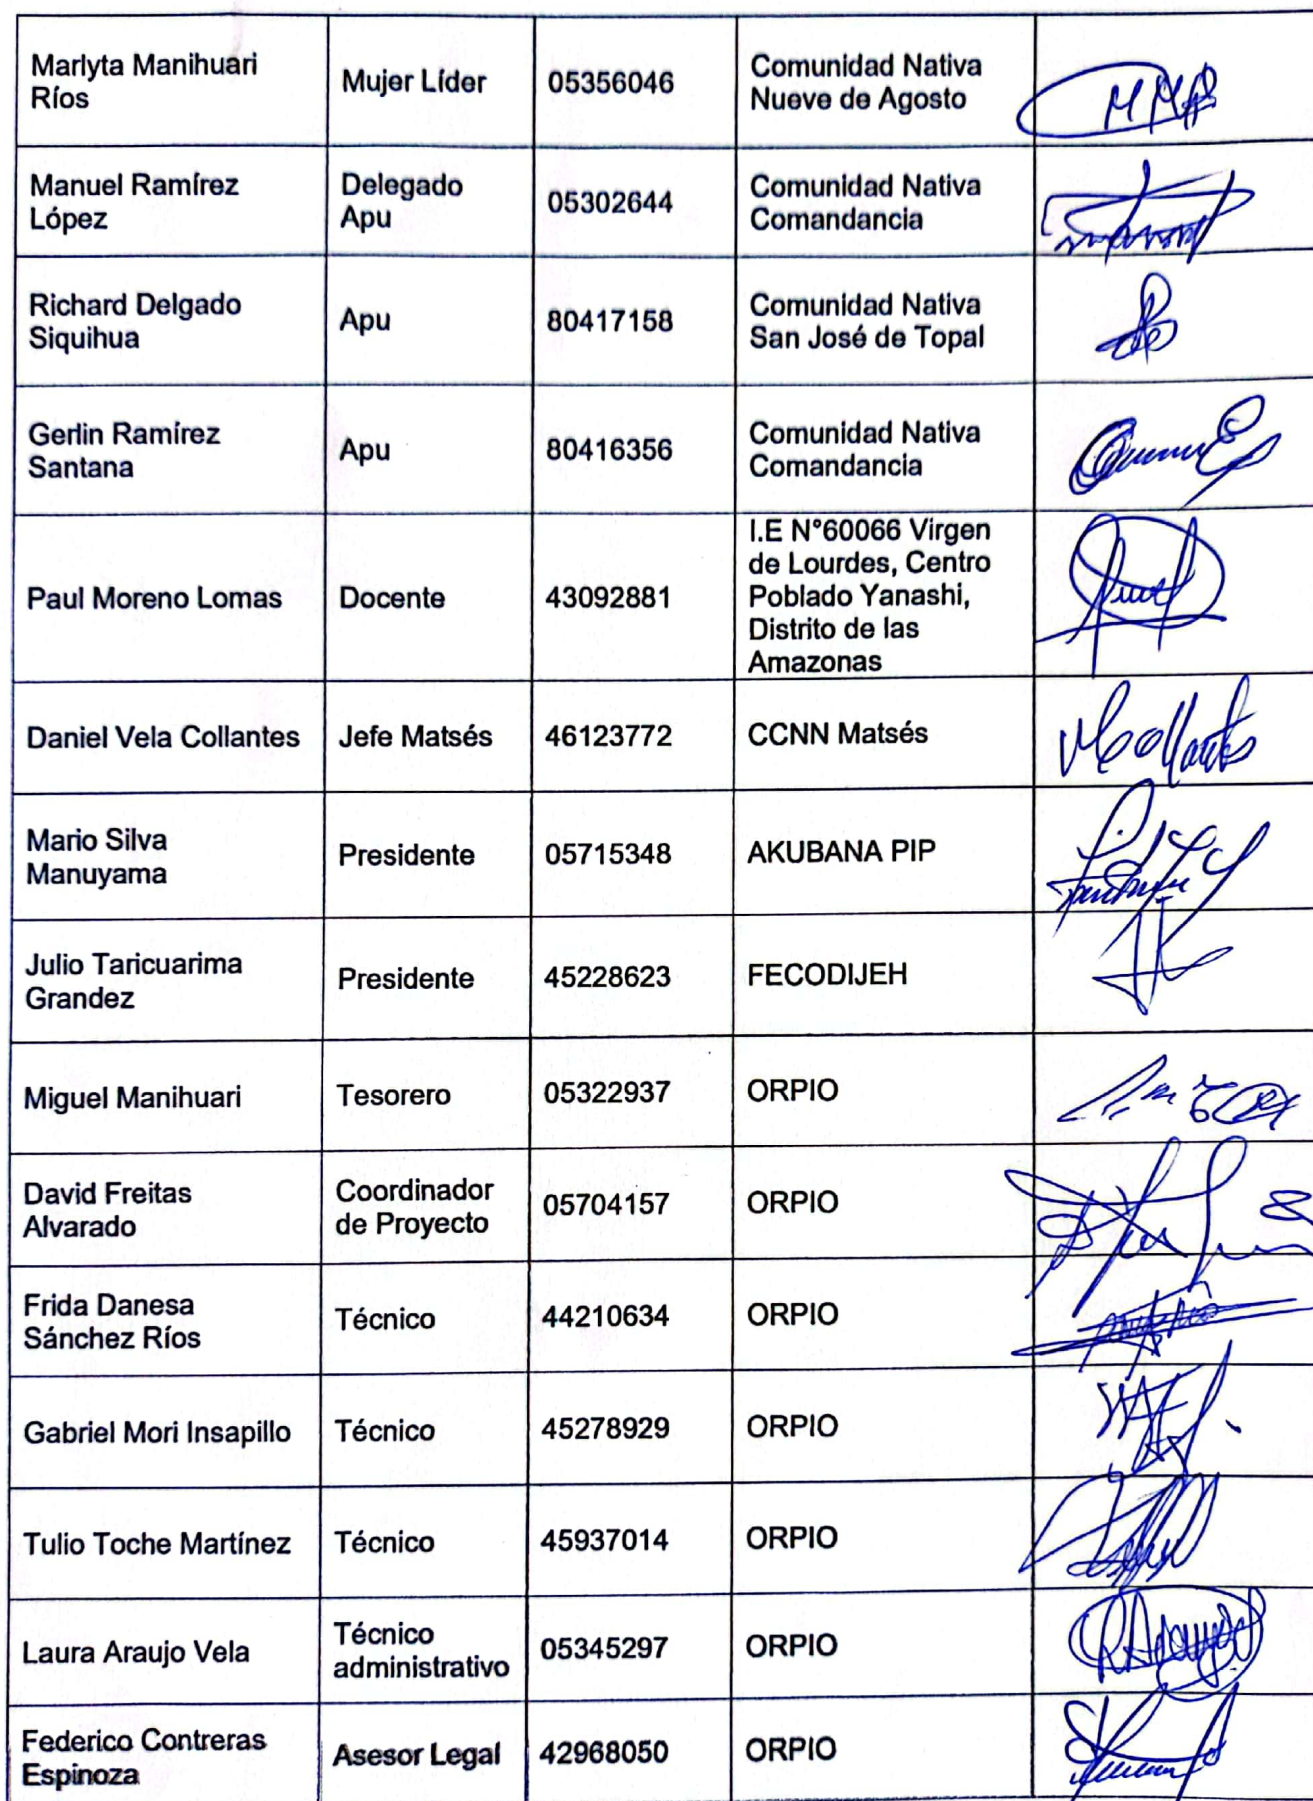 Marlyta Manihuari
Ríos
Mujer Líder
05356046
Comunidad Nativa
Nueve de Agosto
Manuel Ramírez
López
Delegado
Apu
05302644
Comunidad Nativa
Comandancia
Richard Delgado
Siquihua
Apu
80417158
Comunidad Nativa
San José de Topal
Gerlin Ramírez
Santana
Apu
80416356
Comunidad Nativa
Comandancia
Paul Moreno Lomas
Docente
43092881
I.E N°60066 Virgen
de Lourdes, Centro
Poblado Yanashi,
Distrito de las
Amazonas
Daniel Vela Collantes
Jefe Matsés
46123772
CCNN Matsés
Mario Silva
Manuyama
Presidente
05715348
AKUBANA PIP
Julio Taricuarima
Grandez
Presidente
45228623
FECODIJEH
Miguel Manihuari
Tesorero
05322937
ORPIO
David Freitas
Alvarado
Coordinador
de Proyecto
05704157
ORPIO
Frida Danesa
Sánchez Ríos
Técnico
44210634
ORPIO
Gabriel Mori Insapillo
Técnico
45278929
ORPIO
Tulio Toche Martínez
Técnico
45937014
ORPIO
Laura Araujo Vela
Técnico
administrativo
05345297
ORPIO
Federico Contreras
Espinoza
Asesor Legal
42968050
ORPIO